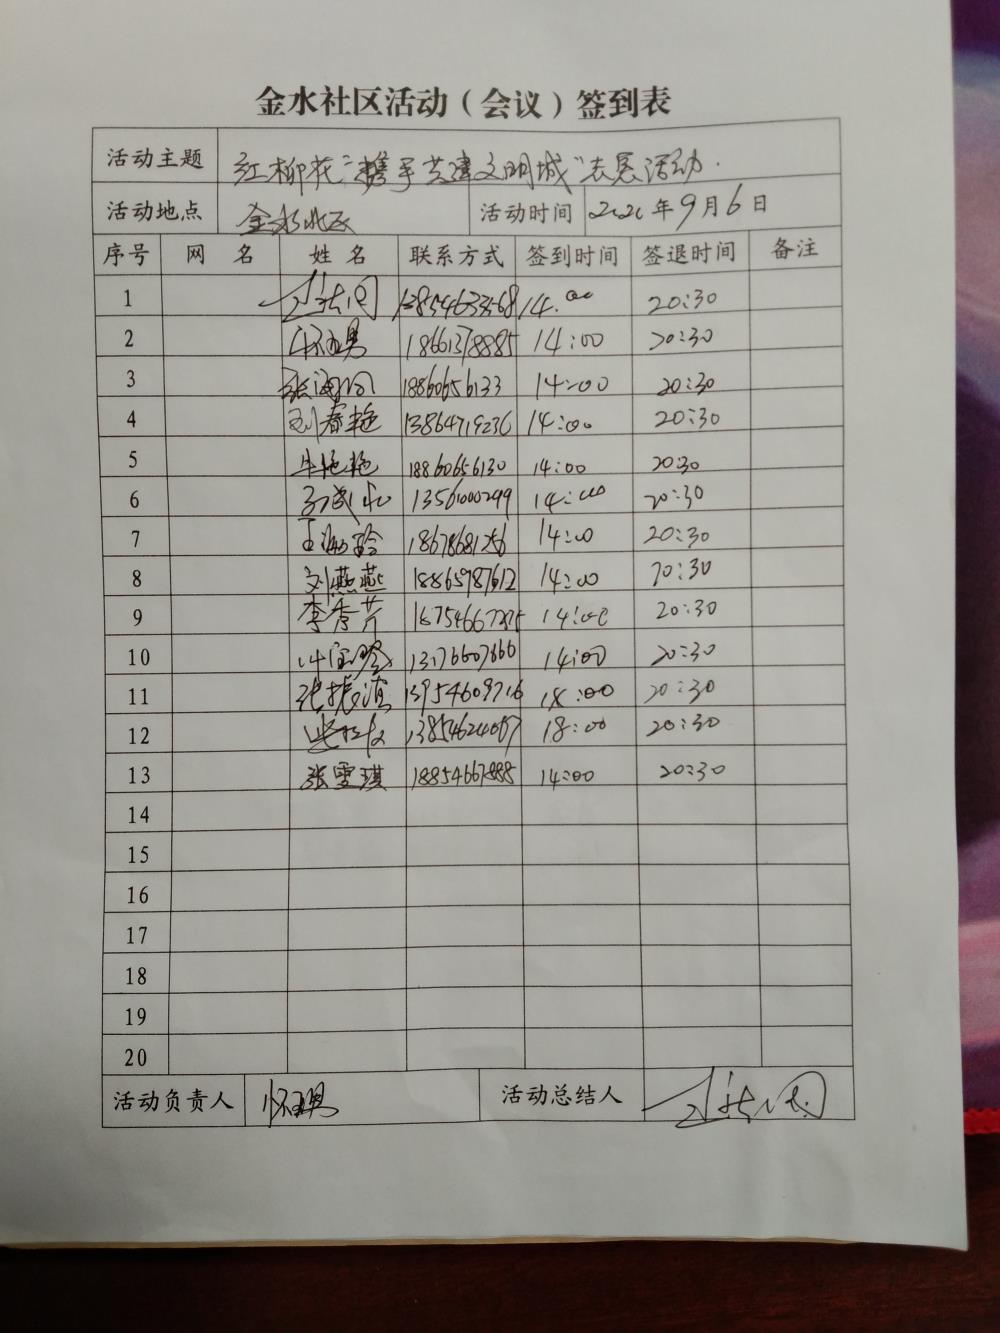 金水社区活动（会议）签到表
活动主题 红柳花"携手共建文明城"志愿活动.
活动地点 金水北区 活动时间 2020年9月6日
序号 网 名 姓 名 联系方式 签到时间 签退时间 备注
1 14:00 20:30
2 18661378885 14:00 20:30
3 18860656133 14:00 20:30
4 刘春艳 13864719236 14:00 20:30
5 牛艳艳 18860656130 14:00 20:30
6 13561000299 14:00 20:30
7 王海玲 18678681256 14:00 20:30
8 刘燕燕 18865987612 14:00 20:30
9 李秀芹 14:00 20:30
10 13176607666 14:00 20:30
11 张振滨 13954609716 18:00 20:30
12 18:00 20:30
13 张雯琪 14:00 20:30
14
15
16
17
18
19
20
活动负责人 活动总结人